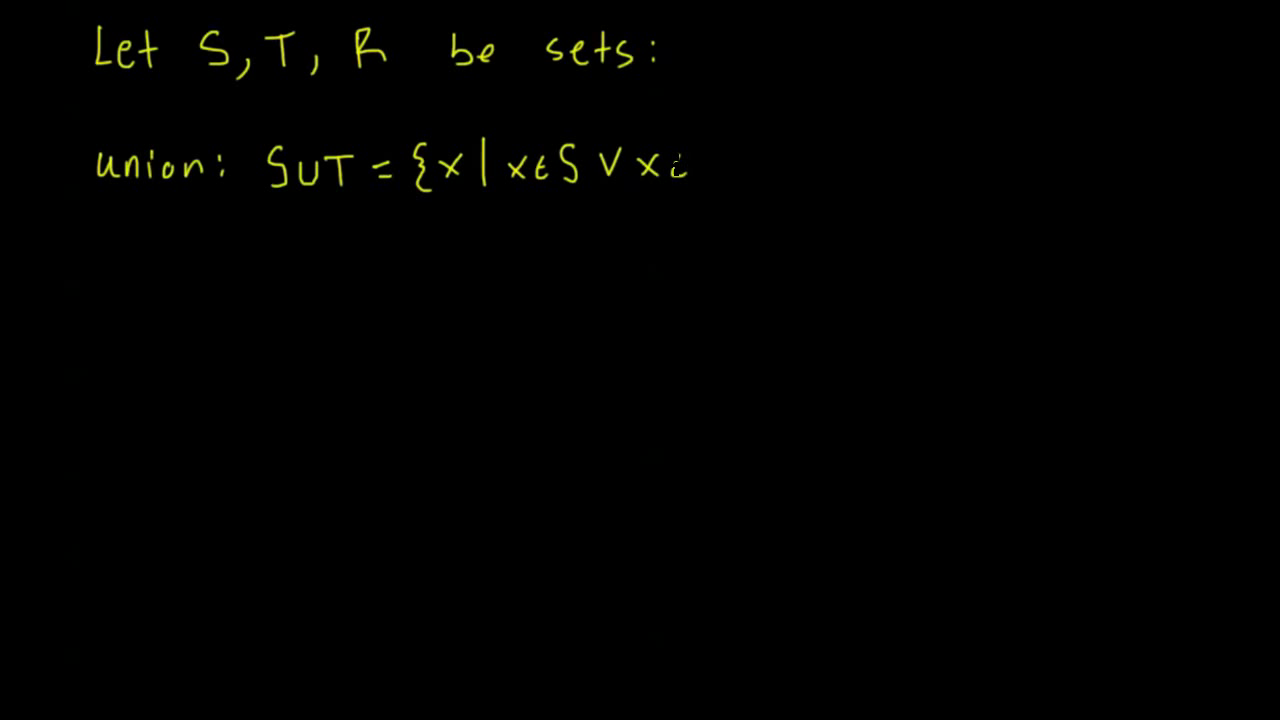 Let S, T, R be sets:
union: S∪T = {x | x∈S ∨ x